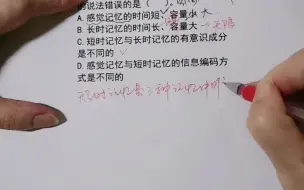 说法错误的是（ ）
A. 感觉记忆的时间短、容量小 大
B. 长时记忆的时间长、容量大
C. 短时记忆与长时记忆的有意识成分
是不同的 √
D. 感觉记忆与短时记忆的信息编码方
式是不同的
短时记忆是三种记忆中唯